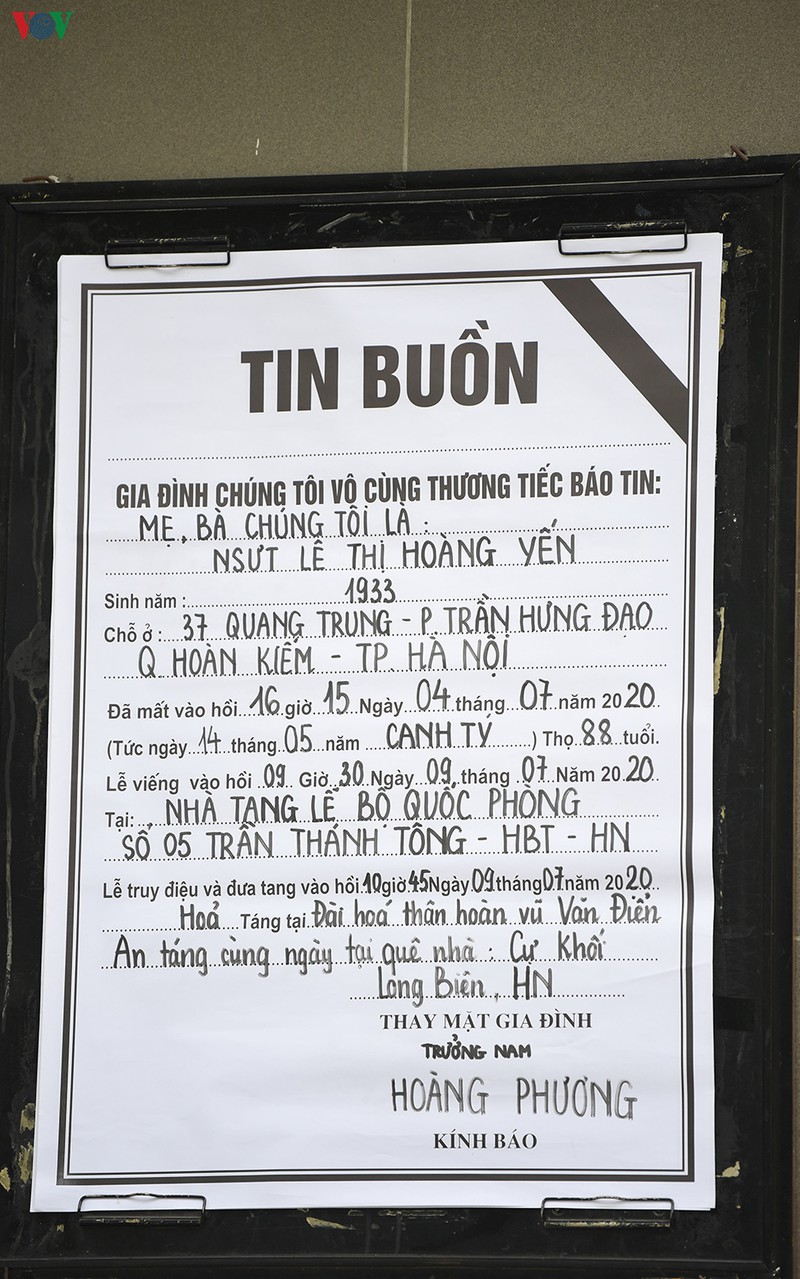 VOV
TIN BUỒN
GIA ĐÌNH CHÚNG TÔI VÔ CÙNG THƯƠNG TIẾC BÁO TIN:
MẸ, BÀ CHÚNG TÔI LÀ :
NSƯT LÊ THỊ HOÀNG YẾN
Sinh năm : 1933
Chỗ ở : 37 QUANG TRUNG - P. TRẦN HƯNG ĐẠO
Q. HOÀN KIẾM - TP. HÀ NỘI
Đã mất vào hồi 16 giờ 15 Ngày 04 tháng 07 năm 2020
(Tức ngày 14 tháng 05 năm CANH TÝ) Thọ 88 tuổi.
Lễ viếng vào hồi 09 Giờ 30 Ngày 09 tháng 07 Năm 2020
Tại: NHÀ TANG LỄ BỘ QUỐC PHÒNG
SỐ 05 TRẦN THÁNH TÔNG - HBT - HN
Lễ truy điệu và đưa tang vào hồi 10 giờ 45 Ngày 09 tháng 07 năm 2020
Hoả Táng tại Đài hoá thân hoàn vũ Văn Điển
An táng cùng ngày tại quê nhà : Cự Khối
Long Biên, HN
THAY MẶT GIA ĐÌNH
TRƯỞNG NAM
HOÀNG PHƯƠNG
KÍNH BÁO